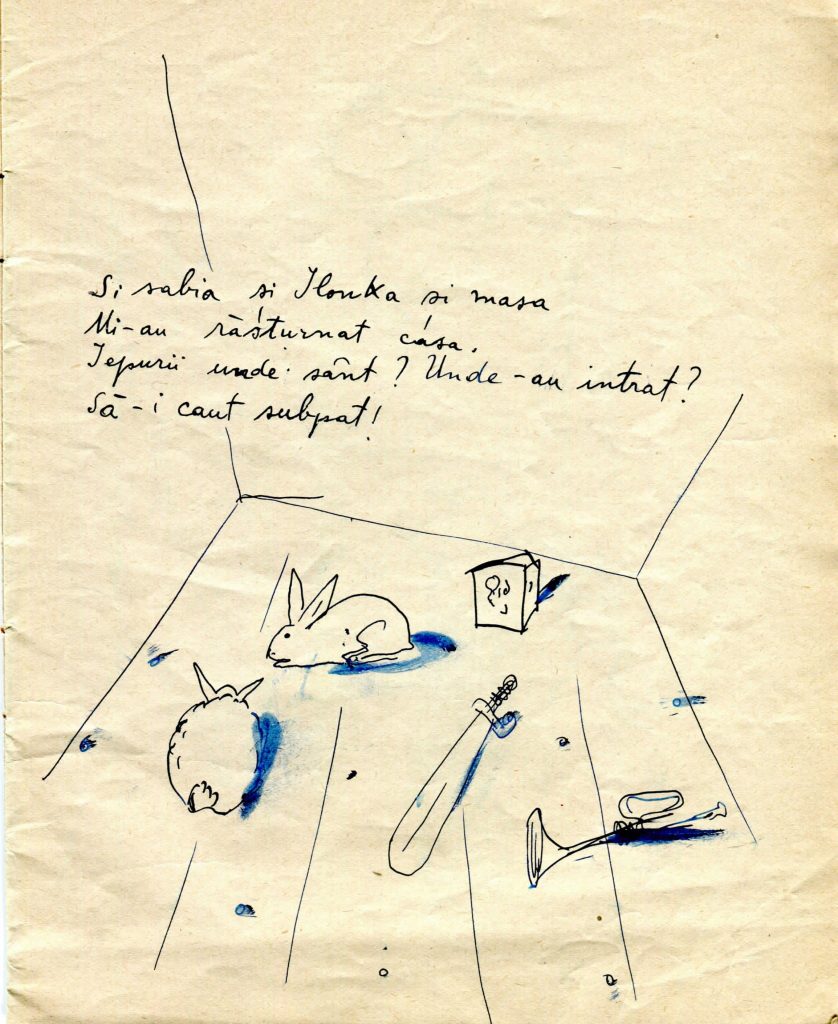 Si sabia și Ilonka și masa
Mi-au răsturnat casa.
Iepurii unde sânt? Unde-au intrat?
Să-i caut subpat!